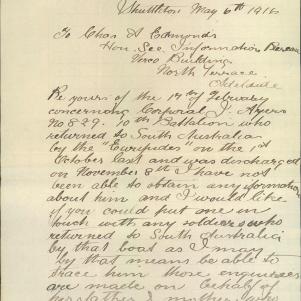 Shuttleton May 6th 1916
To Chas A Edmonds
Hon. Sec Information Bureau
Verco Building
North Terrace
Adelaide
Re yours of the 17th of February
concerning Corporal J. Ayers
No 829. 10th Battalion who
returned to South Australia
by the "Euripides" on the 1st
October last and was discharged
on November 8th I have not
been able to obtain any information
about him and I would like
if you could put one in
touch with any soldiers who
returned to South Australia
by that boat as I may
by that means be able to
trace him these enquiries
are made on behalf of
her father & mother who